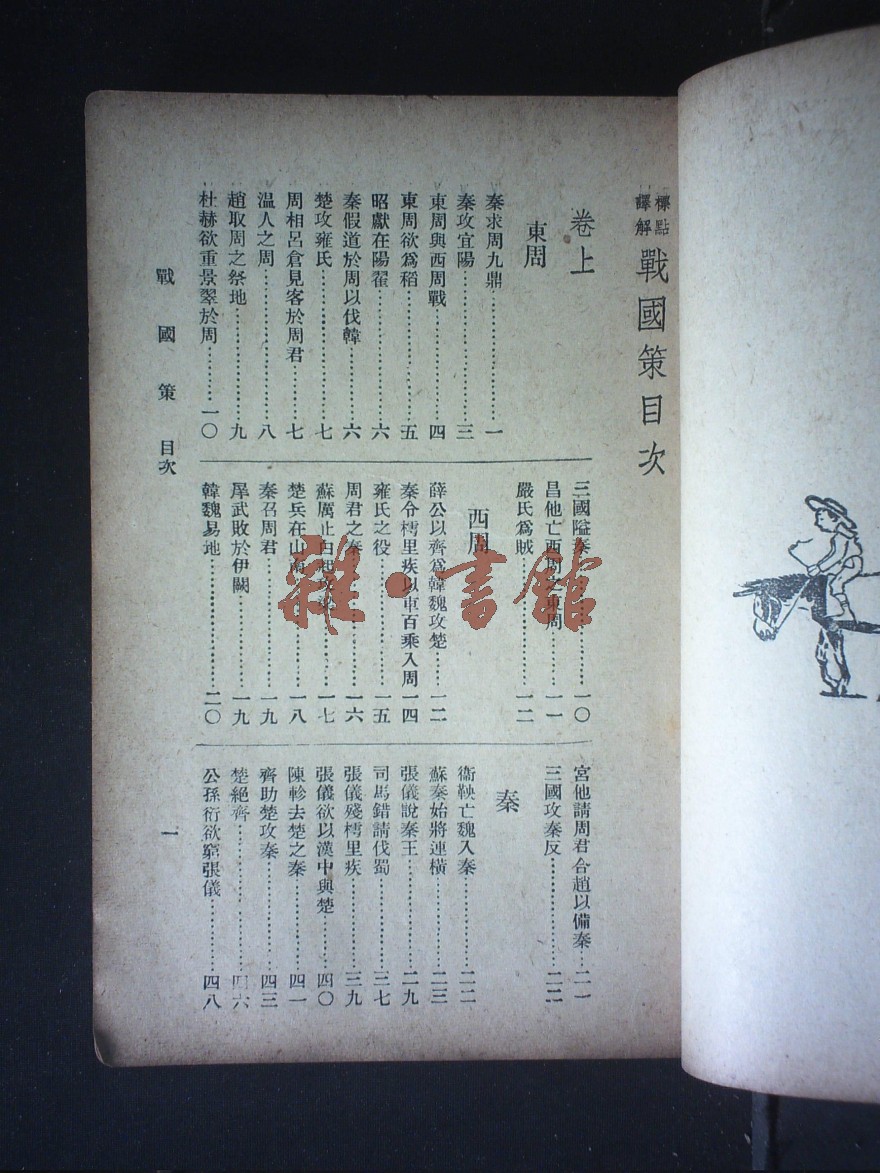 標點
譯解
戰國策目次
卷上
東周
秦求周九鼎……一
秦攻宜陽……三
東周與西周戰……四
東周欲爲稻……五
昭獻在陽翟……六
秦假道於周以伐韓……六
楚攻雍氏……七
周相呂倉見客於周君……七
温人之周……八
趙取周之祭地……九
杜赫欲重景翠於周……一〇
三國隘秦……一〇
昌他亡西周之東周……一一
嚴氏爲賊……一二
西周
薛公以齊爲韓魏攻楚……一二
秦令樗里疾以車百乘入周一四
雍氏之役……一五
周君之秦……一六
蘇厲止白起攻梁……一七
楚兵在山南……一八
秦召周君……一九
犀武敗於伊闕……一九
韓魏易地……二〇
宮他請周君合趙以備秦…二一
三國攻秦反……二二
秦
衞鞅亡魏入秦……二二
蘇秦始將連橫……二三
張儀說秦王……二九
司馬錯請伐蜀……三七
張儀殘樗里疾……三九
張儀欲以漢中與楚……四〇
陳軫去楚之秦……四一
齊助楚攻秦……四三
楚絕齊……四六
公孫衍欲窮張儀……四八
戰國策 目次
一
雜·書館